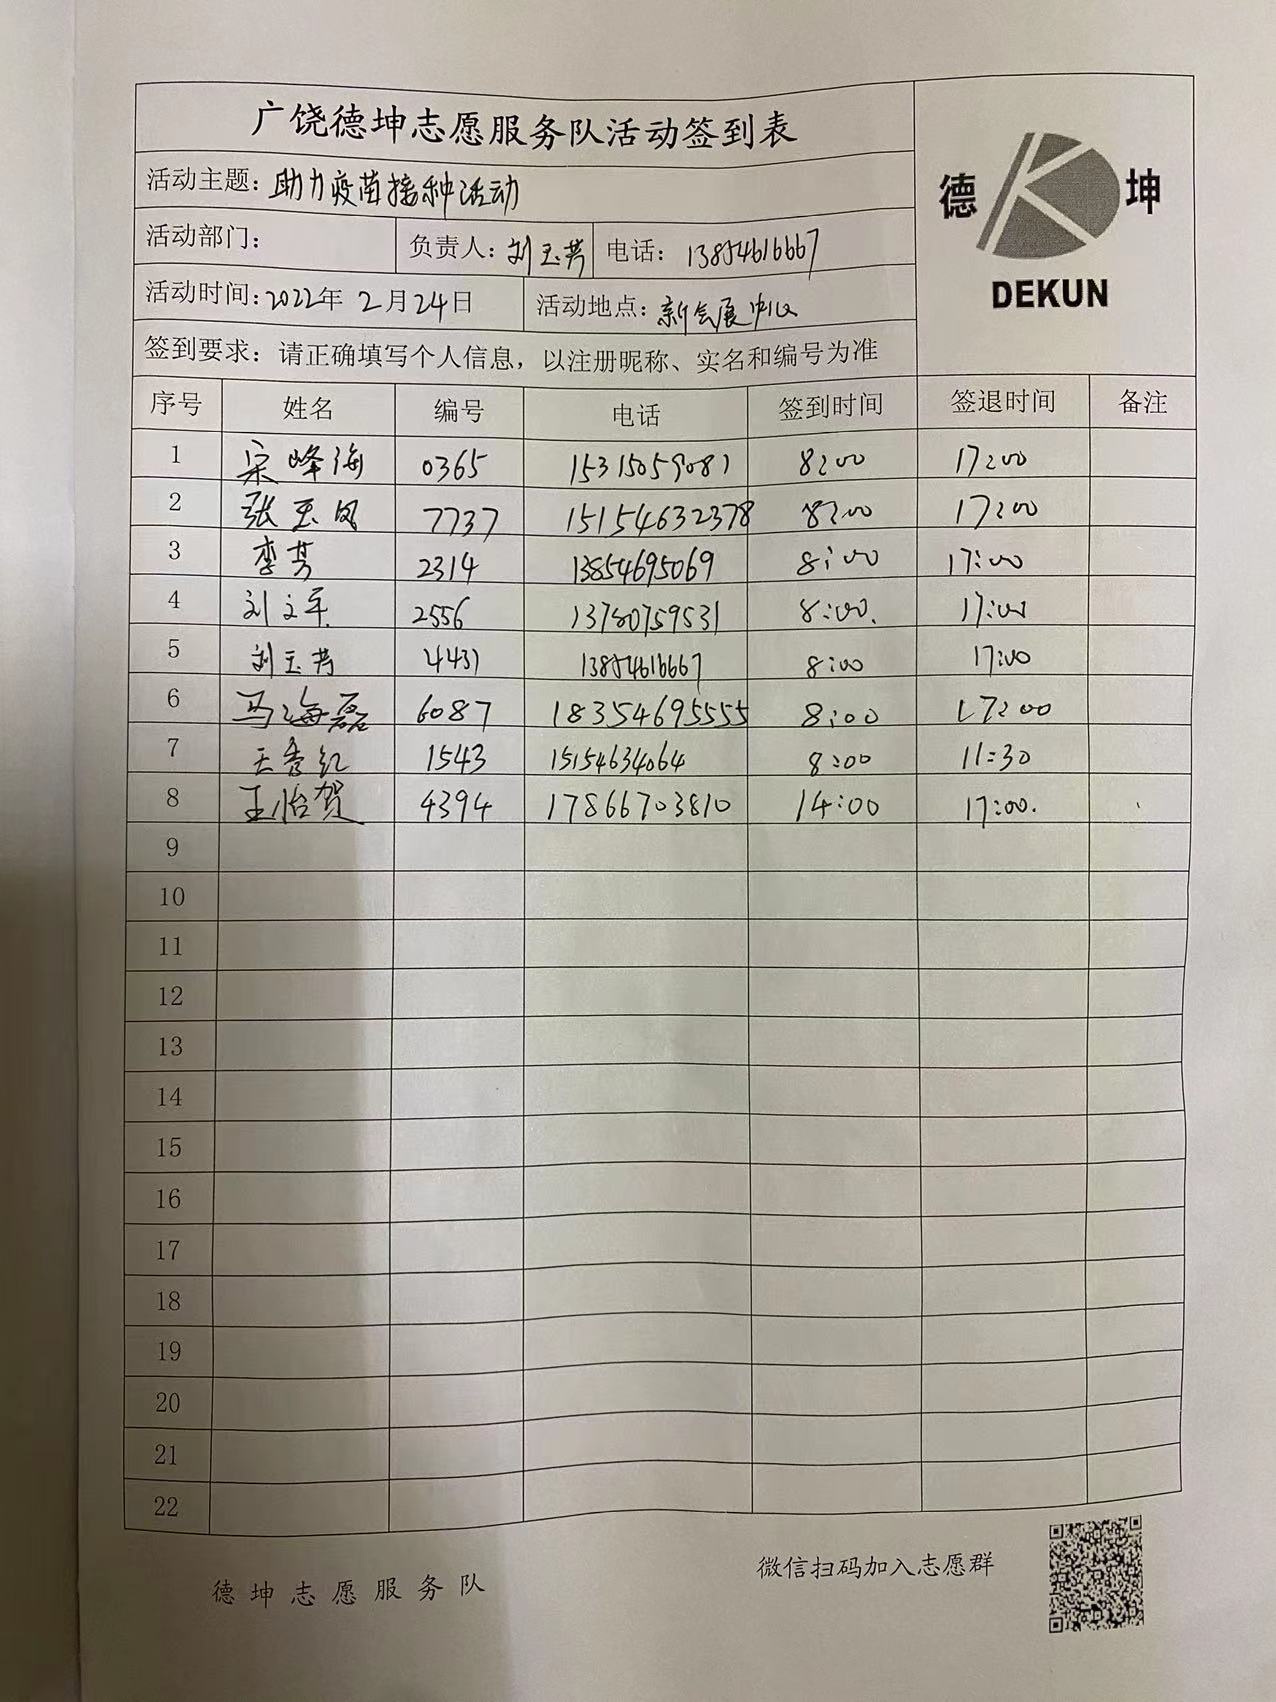 广饶德坤志愿服务队活动签到表
德 坤
DEKUN
活动主题：助力疫苗接种活动
活动部门： 负责人：刘玉芳 电话：13854616667
活动时间：2022年 2月24日 活动地点：新会展中心
签到要求：请正确填写个人信息，以注册昵称、实名和编号为准
序号 姓名 编号 电话 签到时间 签退时间 备注
1 宋峰海 0365 15315059081 8:00 17:00
2 张玉凤 7737 15154632378 8:00 17:00
3 李芳 2314 13854695069 8:00 17:00
4 刘文军 2556 13780759531 8:00. 17:00
5 刘玉芳 4431 13854616667 8:00 17:00
6 马海磊 6087 18354695555 8:00 17:00
7 王秀红 1543 15154634064 8:00 11:30
8 王怡贺 4394 17866703810 14:00 17:00.
9
10
11
12
13
14
15
16
17
18
19
20
21
22
德坤志愿服务队 微信扫码加入志愿群